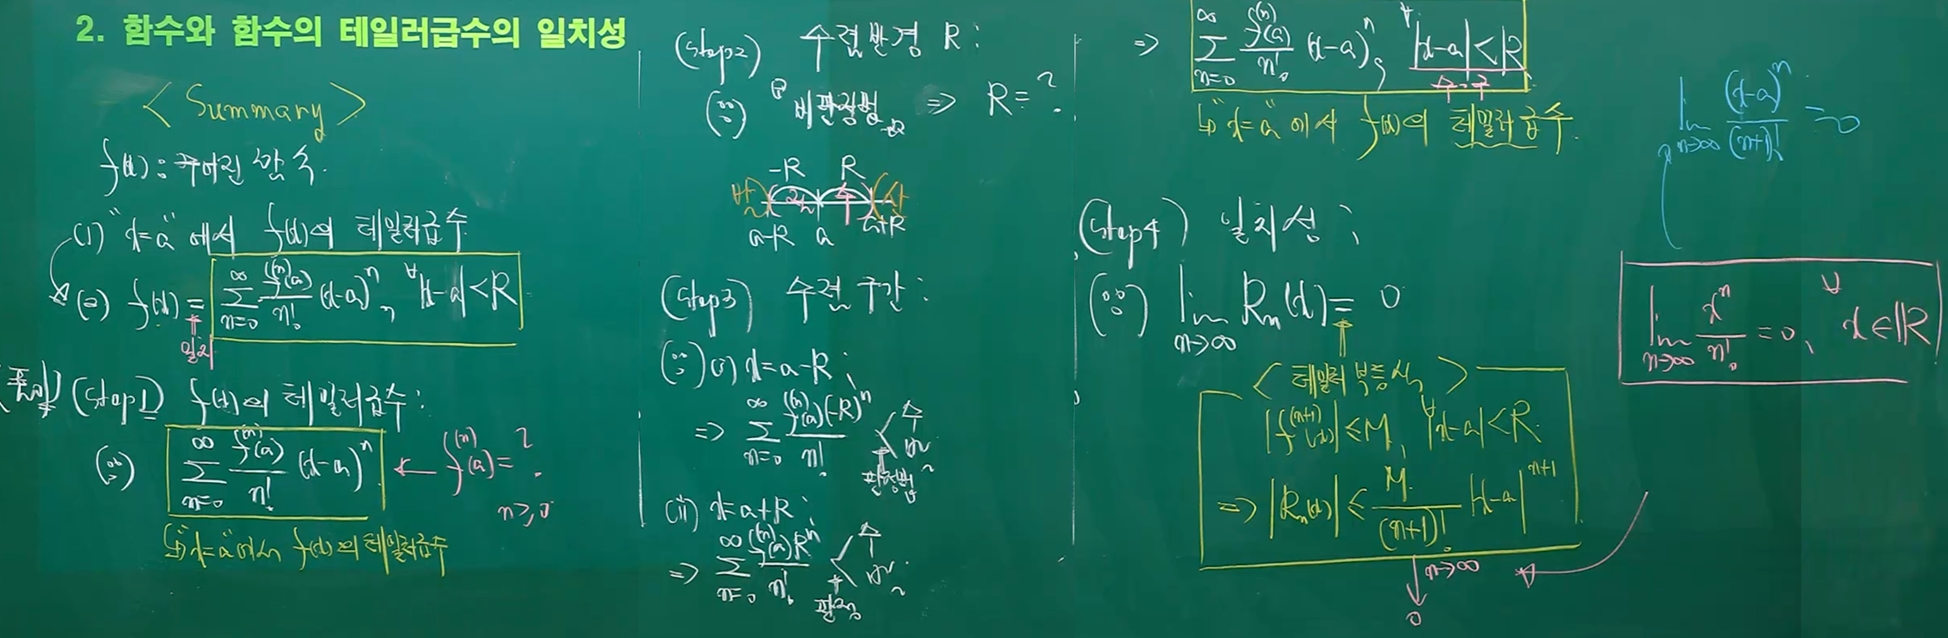 2. 함수와 함수의 테일러급수의 일치성
< Summary >
f(x) : 주어진 함수.
(1) "x=a"에서 f(x)의 테일러급수
(2) f(x) = ∑_{n=0}^{∞} f^{(n)}(a)/n! (x-a)^n, ∀|x-a|<R
일치
(Step1) f(x)의 테일러급수:
(∵) ∑_{n=0}^{∞} f^{(n)}(a)/n! (x-a)^n ← f^{(n)}(a)=?
n≥0
↳ "x=a"에서 f(x)의 테일러급수
(Step2) 수렴반경 R:
(∵) 비판정법 ⇒ R=?
-R R
발 수 발
a-R a a+R
(Step3) 수렴구간:
(∵) (i) x=a-R;
⇒ ∑_{n=0}^{∞} f^{(n)}(a)(-R)^n/n! < 수 발
판정법
(ii) x=a+R;
⇒ ∑_{n=0}^{∞} f^{(n)}(a)R^n/n! < 수 발
판정
⇒ ∑_{n=0}^{∞} f^{(n)}(a)/n! (x-a)^n, ∀|x-a|<R
↳ "x=a"에서 f(x)의 테일러급수.
(Step4) 일치성;
(∵) lim_{n→∞} R_n(x) = 0
< 테일러 부등식 >
|f^{(n+1)}(x)| ≤ M, ∀|x-a|<R
⇒ |R_n(x)| ≤ M/(n+1)! |x-a|^{n+1}
↓ n→∞
0
lim_{n→∞} (x-a)^n/(n+1)! = 0
lim_{n→∞} x^n/n! = 0, ∀x∈ℝ